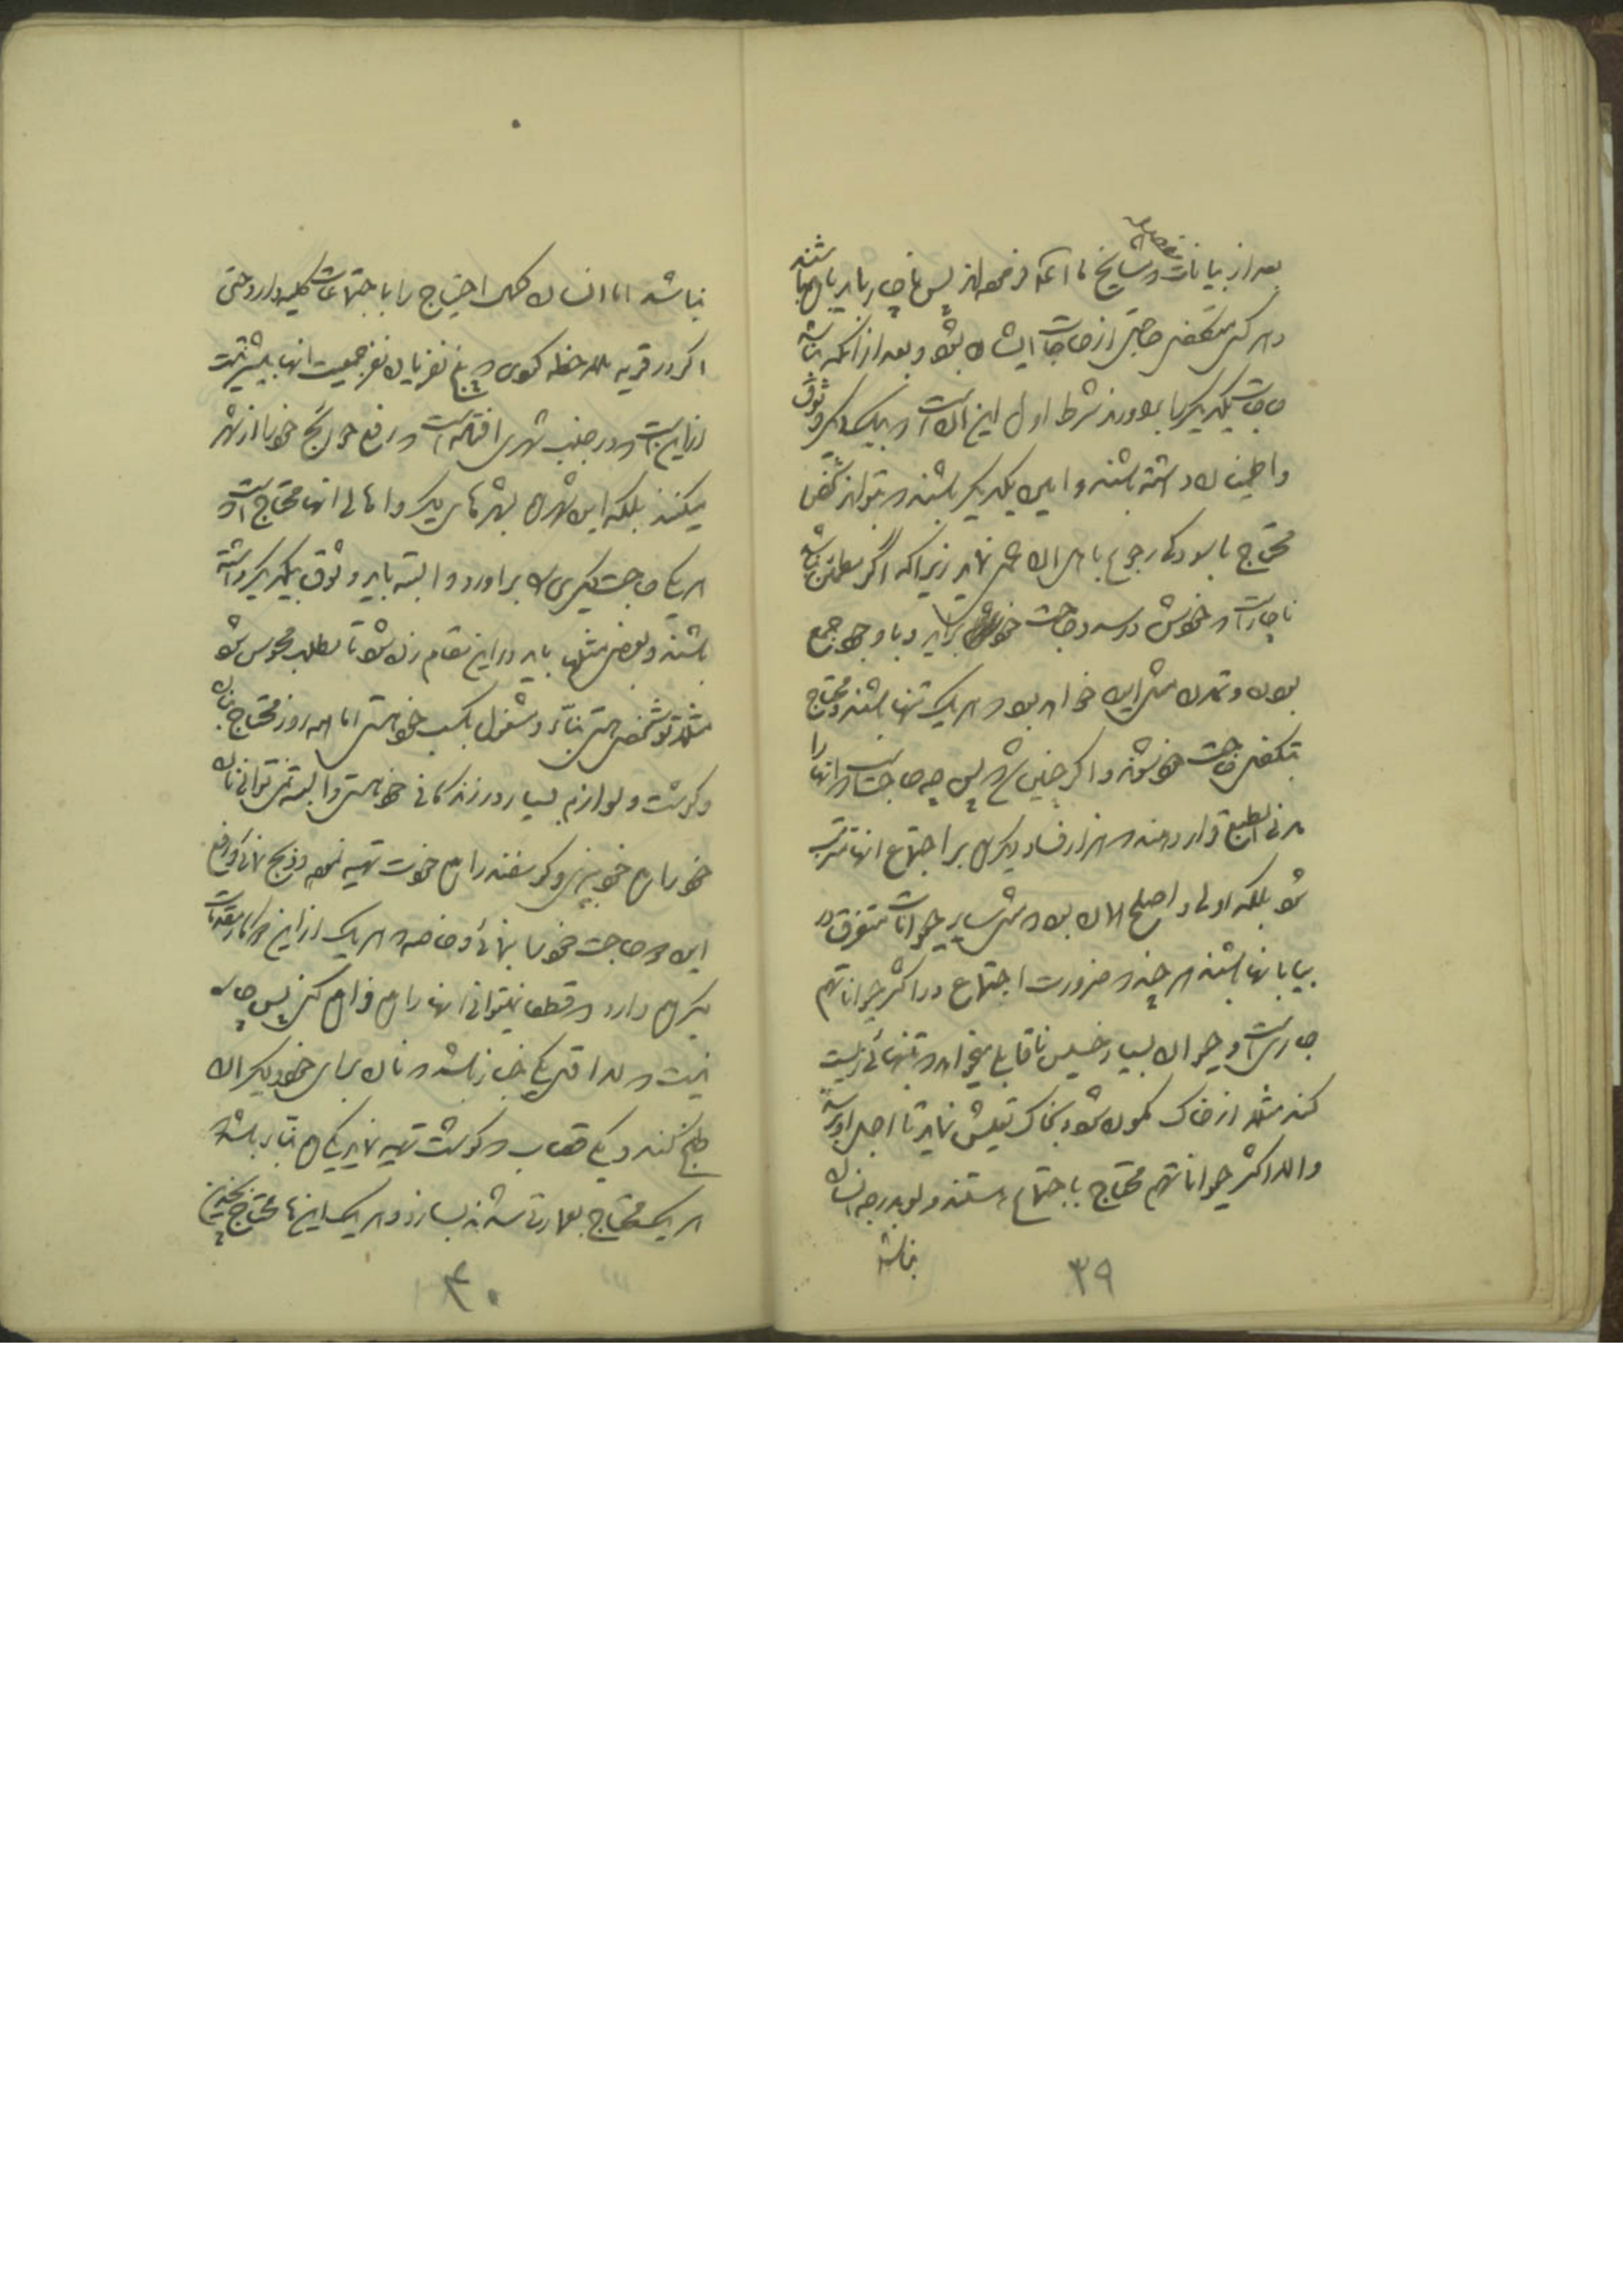 بعد از بیانات مشایخ ما آنچه فرموده‌اند پس ناچار باید با هم باشند
و هر کس متکفل حاجتی از حاجات ایشان بشود و بعد از آنکه بنا شد
حاجات یکدیگر را برآورند شرط اول این است که بیکدیگر وثوق
و اطمینان داشته باشند و امین یکدیگر باشند که بتواند شخص
محتاج باسودگی رجوع باهل آن عمل نماید زیرا که اگر مطمئن نباشد
ناچار است که خودش در صدد حاجت خودش برآید و با وجود جمع
بودن و تمدن مثل این خواهد بود که هر یک تنها باشند و محتاج
بتکفل حاجت خود شوند و اگر چنین شد پس چه حاجت است که انها را
مدنی الطبع قرار دهند که هزار فساد دیگر هم بر اجتماع انها مترتب
شود بلکه اولی و اصلح الان بود که مثل سایر حیوانات متفرق در
بیابانها باشند هر چند که ضرورت اجتماع در اکثر حیوانات هم
جاری است و حیوان بسیار خسیس ناقابلی میخواهد که بتنهائی زیست
کند مثلا از خاک مکون شود و بخاک تعیش نماید تا اجل او برسد
و الا اکثر حیوانات هم محتاج باجتماع هستند ولو بدرجه انسان
نباشد
٣٩
نباشد اما انسان کمال احتیاج را باجتماعات کلیه دارد حتی
اگر در قریه ملاحظه کنی که پنج نفر یا ده نفر جمعیت انها بیشتر نیست
از این است که در جنب شهری افتاده است که رفع حوائج خود را از شهر
میکنند بلکه این شهر هم بشهرهای دیگر و اهالی انها محتاج است که
هر یک حاجت دیگری را برآورد و البته باید وثوق بیکدیگر داشته
باشند و بعضی مثلها باید در این مقام زده شود تا مطلب محسوس شود
مثلا تو شخصی هستی بنّا و مشغول بکسب خود هستی اما همه روز محتاج بنان
و گوشت و لوازم بسیار در زندگانی خود هستی و البته نمی‌توانی نان
خود را هم خود بپزی و گوسفند را هم خودت تهیه نموده و ذبح نمائی و رفع
این دو حاجت خود را بنمائی و خاصه که هر یک از این دو کار مقدمات
دیگر هم دارد که قطعا نمیتوانی انها را هم فراهم کنی پس چاره
نیست که لااقل یکی خباز باشد که نان برای خود و دیگران
طبخ کند و یکی قصاب که گوشت تهیه نماید یکی هم بنا باشد که
هر یک محتاج بعمارتی شدند بسازد و هر یک اینها محتاج بچندین
۴۰